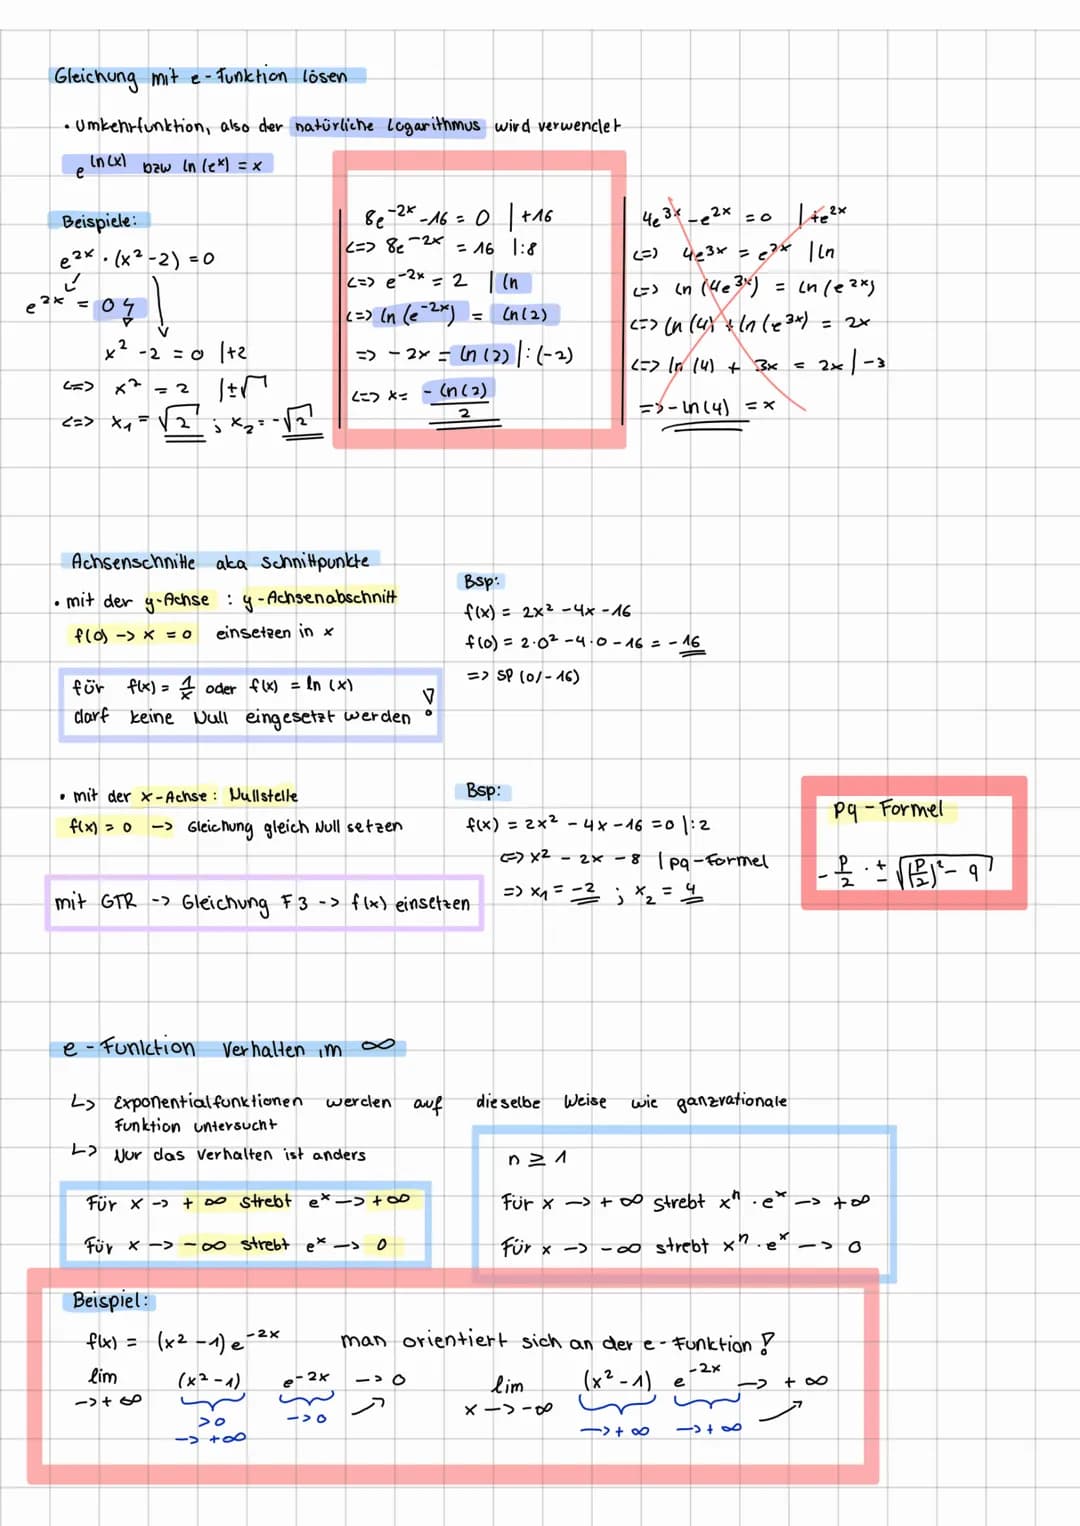 Gleichung mit e-Funktion lösen
• Umkehrfunktion, also der natürliche Logarithmus wird verwendet
e^ln(x) bzw ln(e^x) = x
Beispiele:
e^2x · (x² - 2) = 0
e^2x = 0 ↯
x² - 2 = 0 | +2
<=> x² = 2 | ±√
<=> x₁ = √2 ; x₂ = -√2
8e^-2x - 16 = 0 | +16
<=> 8e^-2x = 16 | :8
<=> e^-2x = 2 | ln
<=> ln(e^-2x) = ln(2)
=> -2x = ln(2) | :(-2)
<=> x = -ln(2)/2
4e^3x - e^2x = 0 | +e^2x
<=> 4e^3x = e^2x | ln
<=> ln(4e^3x) = ln(e^2x)
<=> ln(4) + ln(e^3x) = 2x
<=> ln(4) + 3x = 2x | -3
=> -ln(4) = x
Achsenschnitte aka Schnittpunkte
• mit der y-Achse : y-Achsenabschnitt
f(0) -> x = 0 einsetzen in x
für f(x) = 1/x oder f(x) = ln(x)
darf keine Null eingesetzt werden !
Bsp:
f(x) = 2x² - 4x - 16
f(0) = 2·0² - 4·0 - 16 = -16
=> SP (0/-16)
• mit der x-Achse : Nullstelle
f(x) = 0 -> Gleichung gleich Null setzen
mit GTR -> Gleichung F3 -> f(x) einsetzen
Bsp:
f(x) = 2x² - 4x - 16 = 0 | :2
<=> x² - 2x - 8 | pq-Formel
=> x₁ = -2 ; x₂ = 4
pq-Formel
-p/2 · ± √((p/2)² - q)
e-Funktion Verhalten im ∞
↳ Exponentialfunktionen werden auf dieselbe Weise wie ganzrationale
Funktion untersucht
↳ Nur das Verhalten ist anders
Für x -> +∞ strebt e^x -> +∞
Für x -> -∞ strebt e^x -> 0
n ≥ 1
Für x -> +∞ strebt x^n · e^x -> +∞
Für x -> -∞ strebt x^n · e^x -> 0
Beispiel:
f(x) = (x² - 1) e^-2x man orientiert sich an der e-Funktion !
lim (x² - 1) e^-2x -> 0
-> +∞ >0 -> 0
-> +∞
lim (x² - 1) e^-2x -> +∞
x -> -∞ -> +∞ -> +∞